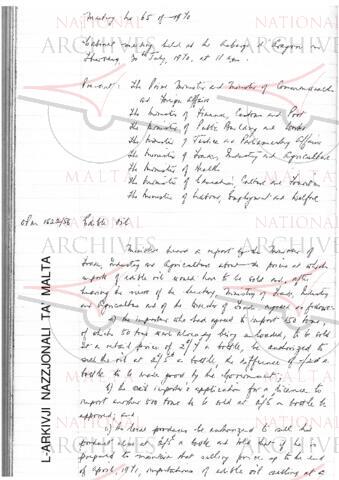 Meeting No 65 of 1970
Cabinet meeting held at the Auberge d'Aragon on
Thursday, 30th July, 1970, at 11 a.m.
Present: The Prime Minister and Minister of Commonwealth
and Foreign Affairs
The Minister of Finance, Customs and Port
The Minister of Public Building and Works
The Minister of Justice and Parliamentary Affairs
The Minister of Trade, Industry and Agriculture
The Minister of Health
The Minister of Education, Culture and Tourism
The Minister of Labour, Employment and Welfare
Edible Oil
Ministers heard a report by the Minister of
Trade, Industry and Agriculture about the price at which
imports of edible oil would have to be sold and, after
hearing the views of the Secretary, Ministry of Trade, Industry
and Agriculture and of the
agreed as follows:
the importers who had agreed to import 250 tons,
of which 50 tons were already being unloaded, to be sold
at a retail price of a bottle, be authorized to
sell the oil at a bottle, the difference of a
bottle to be made good by the Government;
the said importer's application for a licence to
import another 500 tons to be sold at a bottle be
approved; and
the local producers be authorized to sell their
product also at a bottle and told that if he is
prepared to maintain that selling price up to the end
of April, 1971, importations of edible oil selling at a
L-ARKIVJI NAZZJONALI TA' MALTA
NATIONAL
ARCHIVES
MALTA